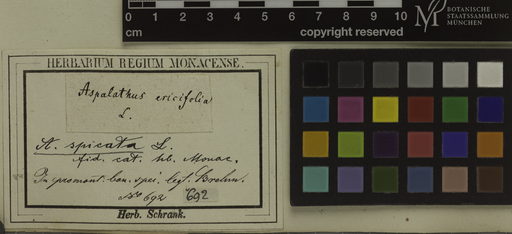 0 1 2 3 4 5 6 7 8 9 10
cm copyright reserved
M BOTANISCHE
STAATSSAMMLUNG
MÜNCHEN
HERBARIUM REGIUM MONACENSE.
Aspalathus ericifolia
L.
A. spicata L.
fid. cat. hb. Monac.
In promont. bon. spei legt. Brehm.
No 692 692
Herb. Schrank.